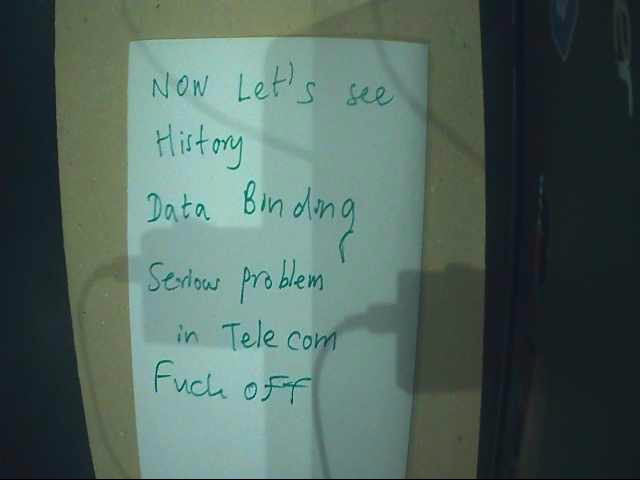 NOW Let's see
History
Data Binding
Serious problem
in Telecom
Fuck off